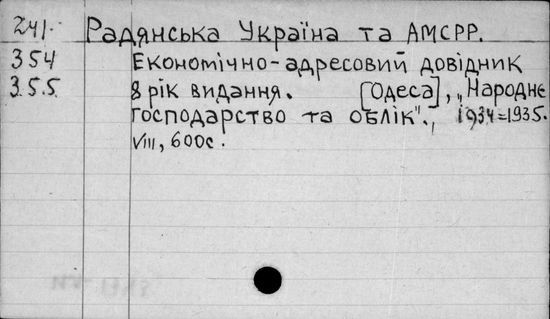 241. Радянська Україна та АМСРР.
354 Економічно-адресовий довідник
3.5.5 8 рік видання. [Одеса], „Народнє
господарство та облік"., 1934=1935.
VIII, 600с.